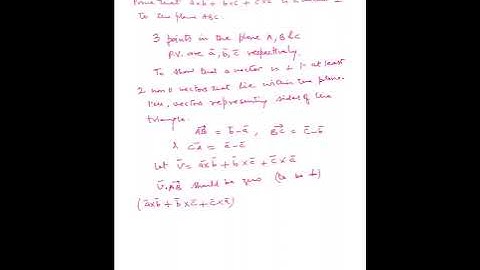 Prove that a̅xb̅ + b̅xc̅ + c̅xa̅ is a
to the plane ABC.
3 points in the plane A, B & C
P.V. are a̅, b̅, c̅ respectively.
To show that a vector is ⊥ to at least
2 non 0 vectors that lie within the plane.
like, vectors representing sides of the
triangle.
A͞B = b̅ - a̅ , B͞C = c̅ - b̅
& C͞A = a̅ - c̅
Let V̅ = a̅xb̅ + b̅xc̅ + c̅xa̅
V̅.A͞B should be zero (to be ⊥)
(a̅xb̅ + b̅xc̅ + c̅xa̅)